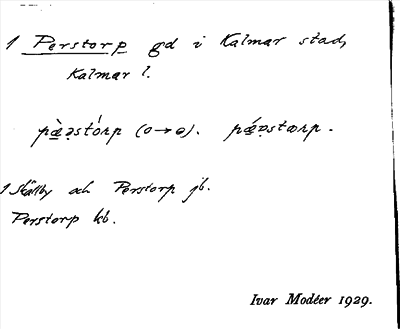 1 Perstorp gd i Kalmar stad,
Kalmar l.
pæ̀əstórp (o→ɵ). pǽəstærp.
1 Skälby och Perstorp jb.
Perstorp kb.
Ivar Modéer 1929.